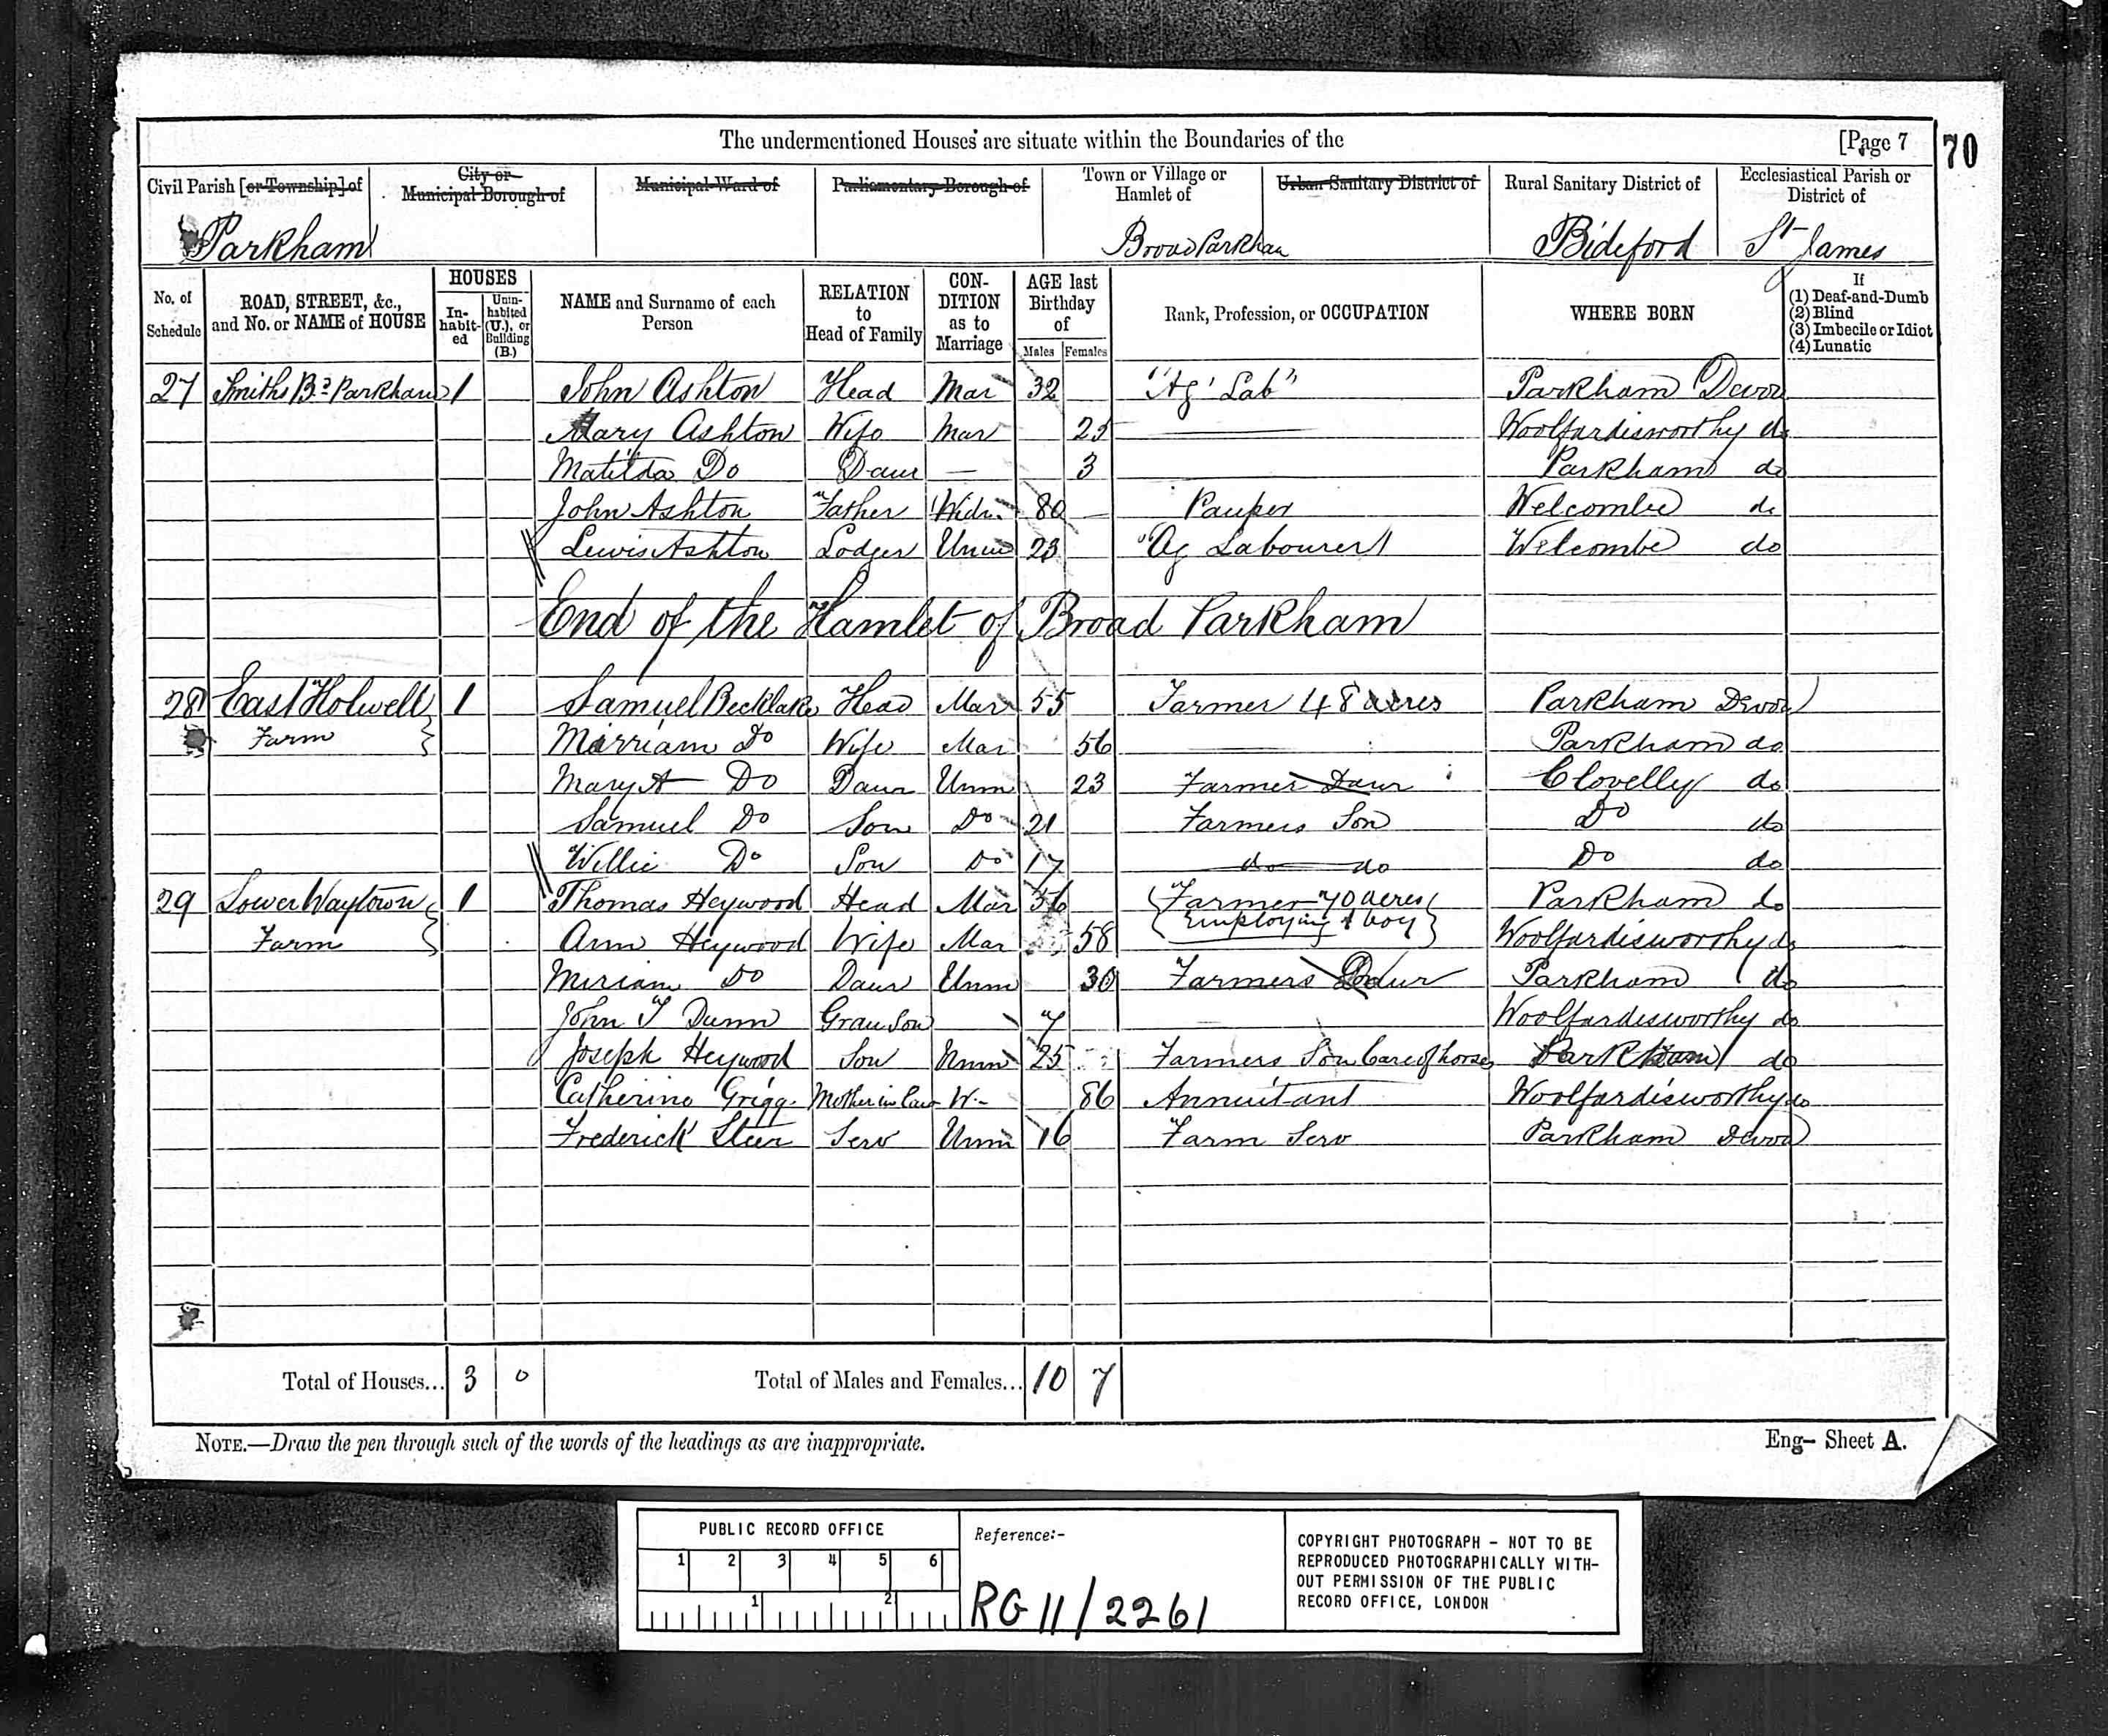 The undermentioned Houses are situate within the Boundaries of the [Page 7 70
Civil Parish [or Township] of City or Municipal Borough of Municipal Ward of Parliamentary Borough of Town or Village or Hamlet of Urban Sanitary District of Rural Sanitary District of Ecclesiastical Parish or District of
Parkham Broad Parkham Bideford St James
No. of Schedule ROAD, STREET, &c., and No. or NAME of HOUSE HOUSES Inhabited Uninhabited (U.), or Building (B.) NAME and Surname of each Person RELATION to Head of Family CONDITION as to Marriage AGE last Birthday of Males Females Rank, Profession, or OCCUPATION WHERE BORN If (1) Deaf-and-Dumb (2) Blind (3) Imbecile or Idiot (4) Lunatic
27 Smiths Parkham 1 John Ashton Head Mar 32 "Ag' Lab" Parkham Devon
Mary Ashton Wife Mar 25 Woolfardisworthy do
Matilda Do Daur — 3 Parkham do
John Ashton Father Widr. 80 Pauper Welcombe do
Lewis Ashton Lodger Unm 23 "Ag Labourer Welcombe do
End of the Hamlet of Broad Parkham
28 East Holwell 1 Samuel Becklake Head Mar 55 Farmer 48 acres Parkham Devon
Farm Mirriam Do Wife Mar 56 Parkham do
Mary A Do Daur Unm 23 Farmer Daur Clovelly do
Samuel Do Son Do 21 Farmers Son Do do
Willie Do Son Do 17 do do Do do
29 Lower Waytown 1 Thomas Heywood Head Mar 56 Farmer 70 acres Parkham do
Employing 1 boy
Farm Ann Heywood Wife Mar 58 Woolfardisworthy do
Miriam Do Daur Unm 30 Farmers Daur Parkham do
John T Dunn Grauson 7 Woolfardisworthy do
Joseph Heywood Son Unm 25 Farmers Son Care of horses Parkham do
Catherine Grigg. Mother in Law W- 86 Annuitant Woolfardisworthy do
Frederick Steer Serv Unm 16 Farm Serv Parkham Devon
Total of Houses... 3 0 Total of Males and Females... 10 7
NOTE.—Draw the pen through such of the words of the headings as are inappropriate. Eng- Sheet A.
PUBLIC RECORD OFFICE
1 2 3 4 5 6
1 2
Reference:-
RG 11/2261
COPYRIGHT PHOTOGRAPH - NOT TO BE
REPRODUCED PHOTOGRAPHICALLY WITH-
OUT PERMISSION OF THE PUBLIC
RECORD OFFICE, LONDON